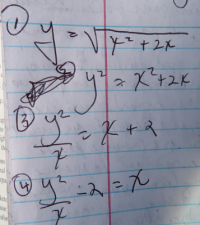 ① y = √x² + 2x
② y² = x² + 2x
③ y²/x = x + 2
④ y²/x - 2 = x